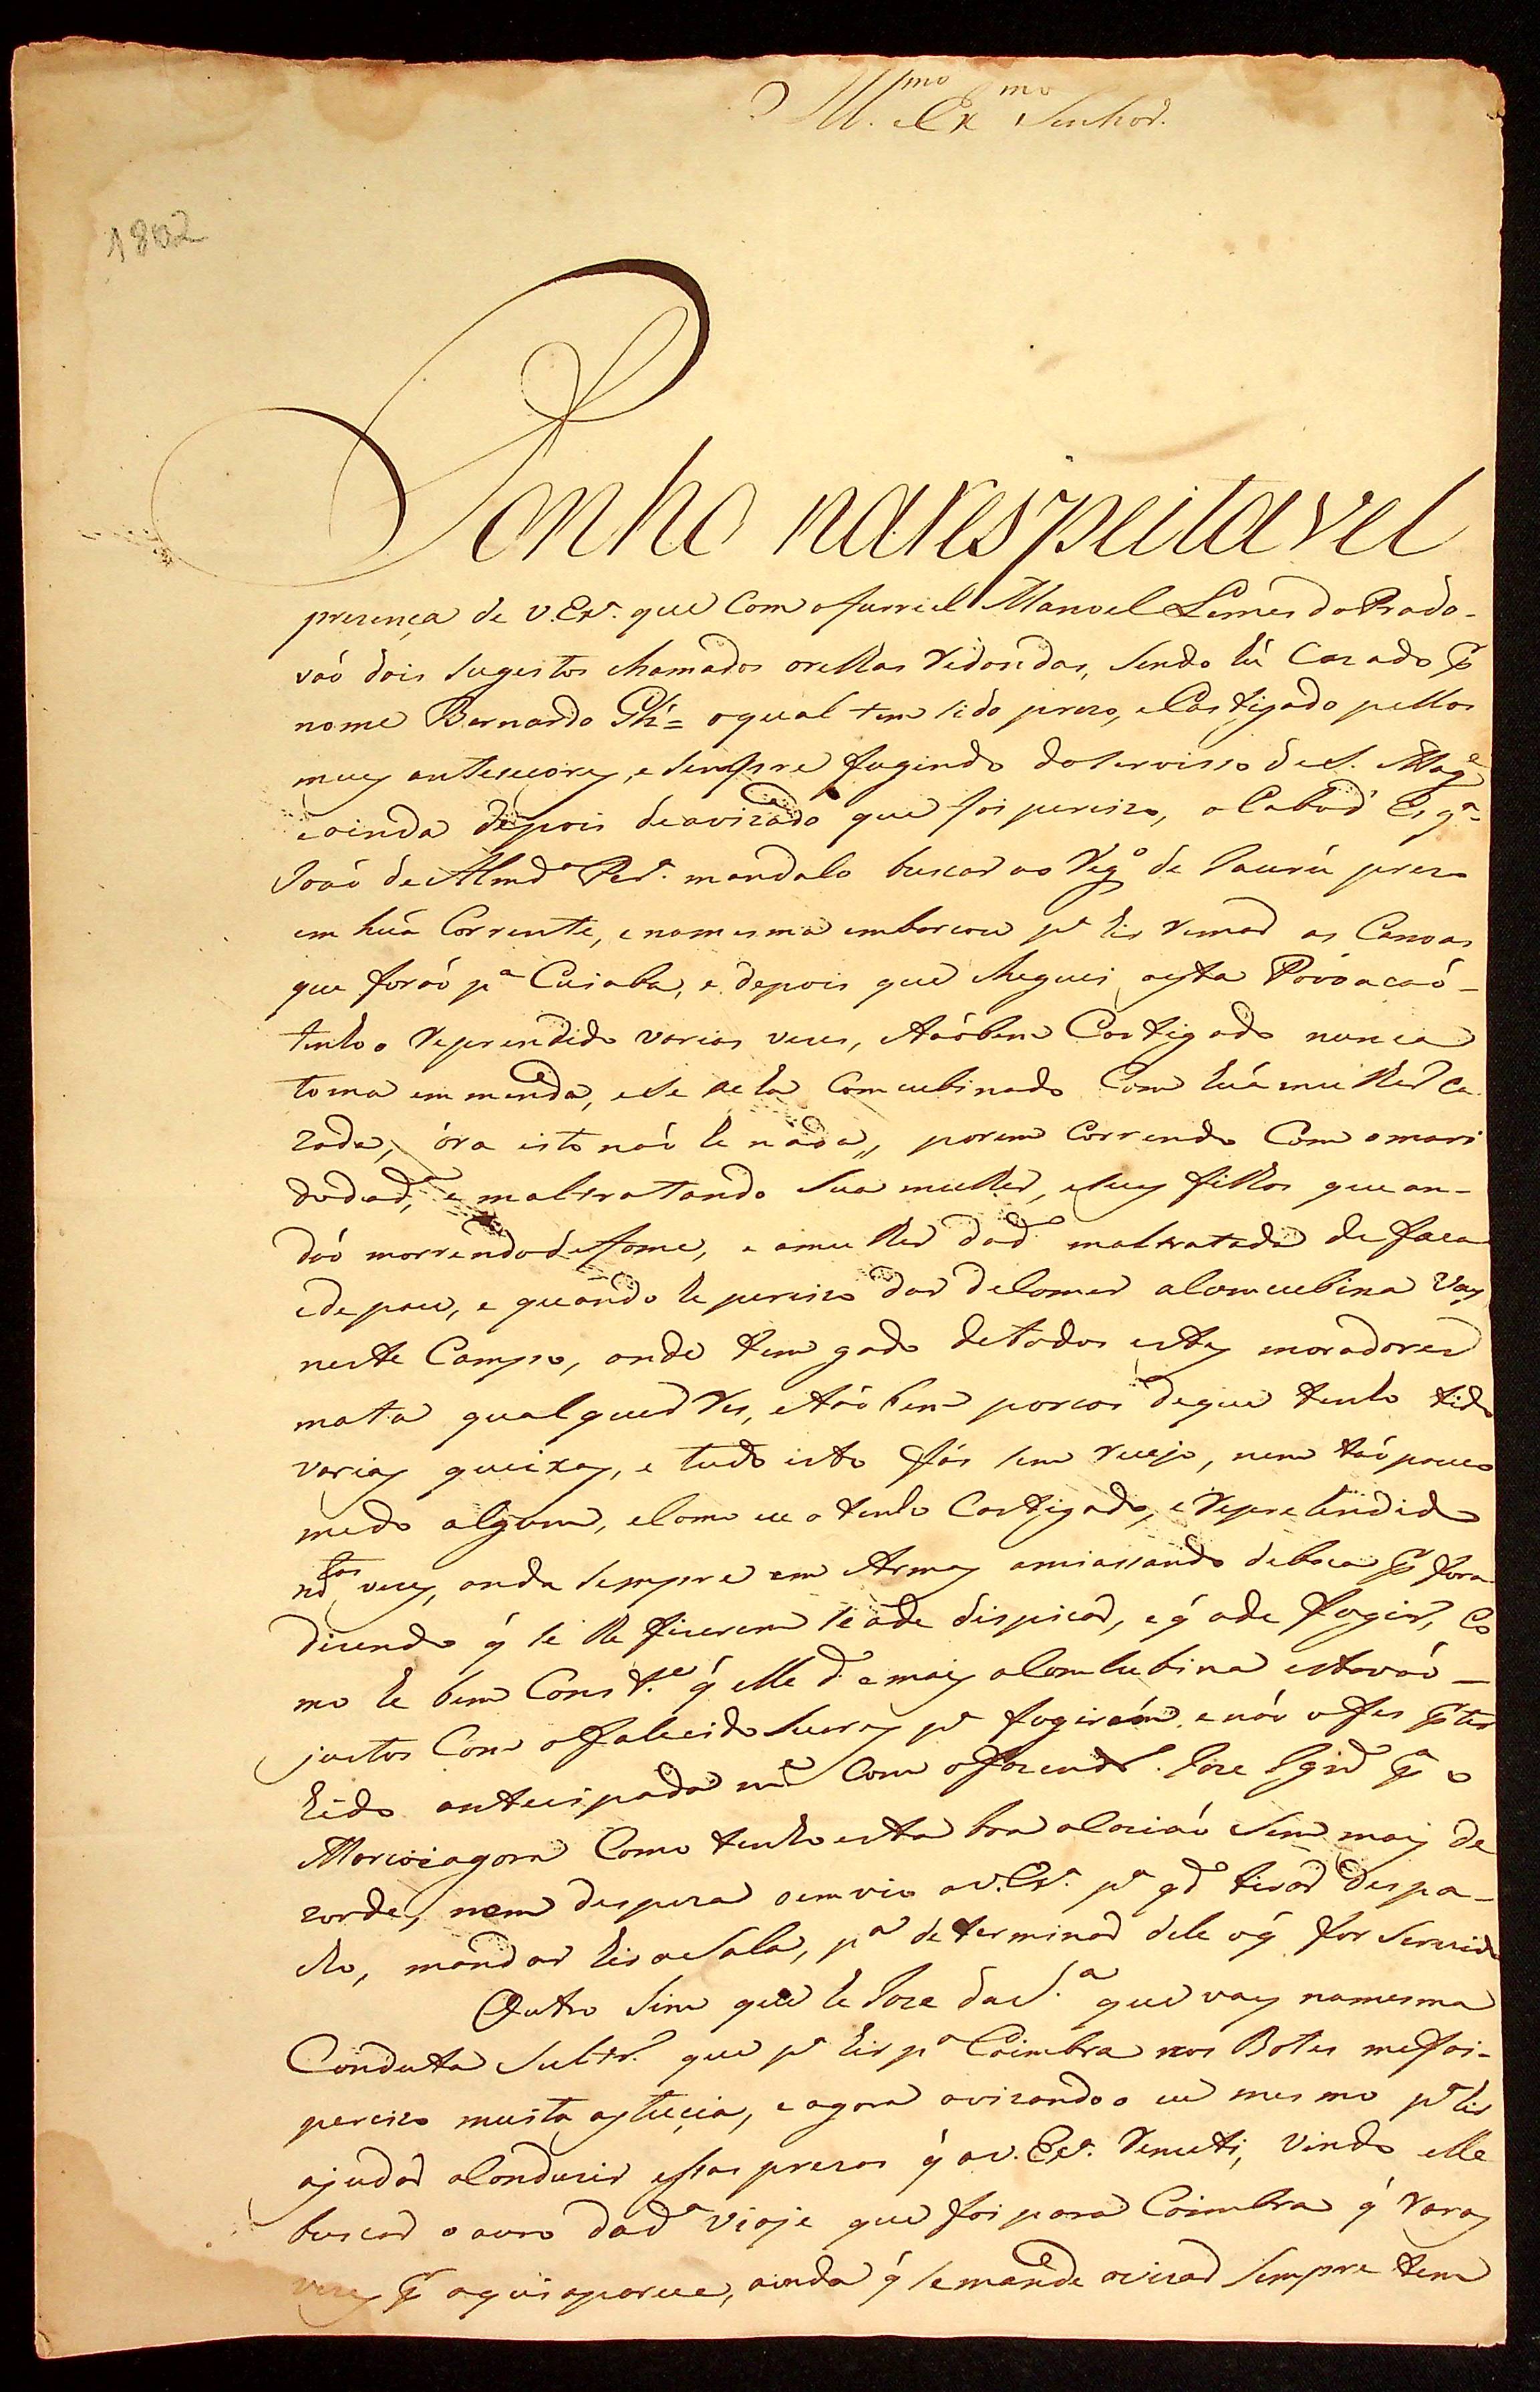 Ill.mo Ex.mo Senhor.
1802
Ponho na respeitavel
prezença de V. Ex.ª que Com o furriel Manoel Lemes do Prado
vaó dois sugeitos chamados orelhas Redondas, Sendo hú Cazado p.r
nome Bernardo o qual tem sido prezo, e Castigado pellos
meuz antesesorez, e Sempre fugindo do Servisso de S. Mag.e
e ainda depois de avizado que foi percizo, o Cabo d' Esq.ª
Joaó de Almd.ª Per.ª mandalo buscar ao Reg.º de Jaurú prezo
em húa Corrente, e na mesma embarcou p.ª hir Remar as Canoas
que foraó p.ª Cuiaba, e depois que cheguei a esta Povoacaó
tenho o Reprendido varias vezes, e taóbem Castigado nunca
toma emmenda, e Se acha Comcubinado Com húa mulher Ca
zada, óra isto naó he nada,, porem Correndo Com o mari
do da d.ª, e maltratando Sua mulher, e Seuz filhos que an-
daó morrendo de fome, e a mulher da d.ª maltratada de faca
e de pau, e quando he percizo dar de Comer a Comcubina Vay
neste Campo, onde tem gado de todos estez moradores
mata qualquer Res, e taóbem porcos de que tenho tido
variaz queixaz, e tudo isto fás sem Recejo, nem taó pouco
medo algum, e Como eu o tenho Castigado, e Reprehendido
vezez, anda Sempre em Armaz amiassando de boca p.r fora
dizendo q́ se lhe fizerem se ade dispicar, e q́ ade fugir, Co
mo he bem Const.e q́ elle d.º e maiz a Comcubina estavaó
justos Com o falecido p.ª fugirem, e naó o fes p.r ter
hido antecipadam.te Com o Jose p.ª o
agora Como tenho esta boa a Caziaó Sem maiz de
zorde, nem despeza o emvio a V. Ex.ª p.ª q.do tirar despa-
cho, mandar hir a Sala, p.ª determinar dele o q́ for Servido
Outro Sim que he Joze da S.ª que vay na mesma
Conduta que p.ª hir p.ª Coimbra nos Botes me foi
percizo muita astucia, e agora avizando o eu mesmo p.ª hir
ajudar a Conduzir essas prezas q́ a V. Ex.ª Remeti, vindo elle
buscar o ouro da d.ª viaje que foi para Coimbra q́ Varaz
vezez p.r aqui aparece, ainda q́ se mande avizar Sempre tem